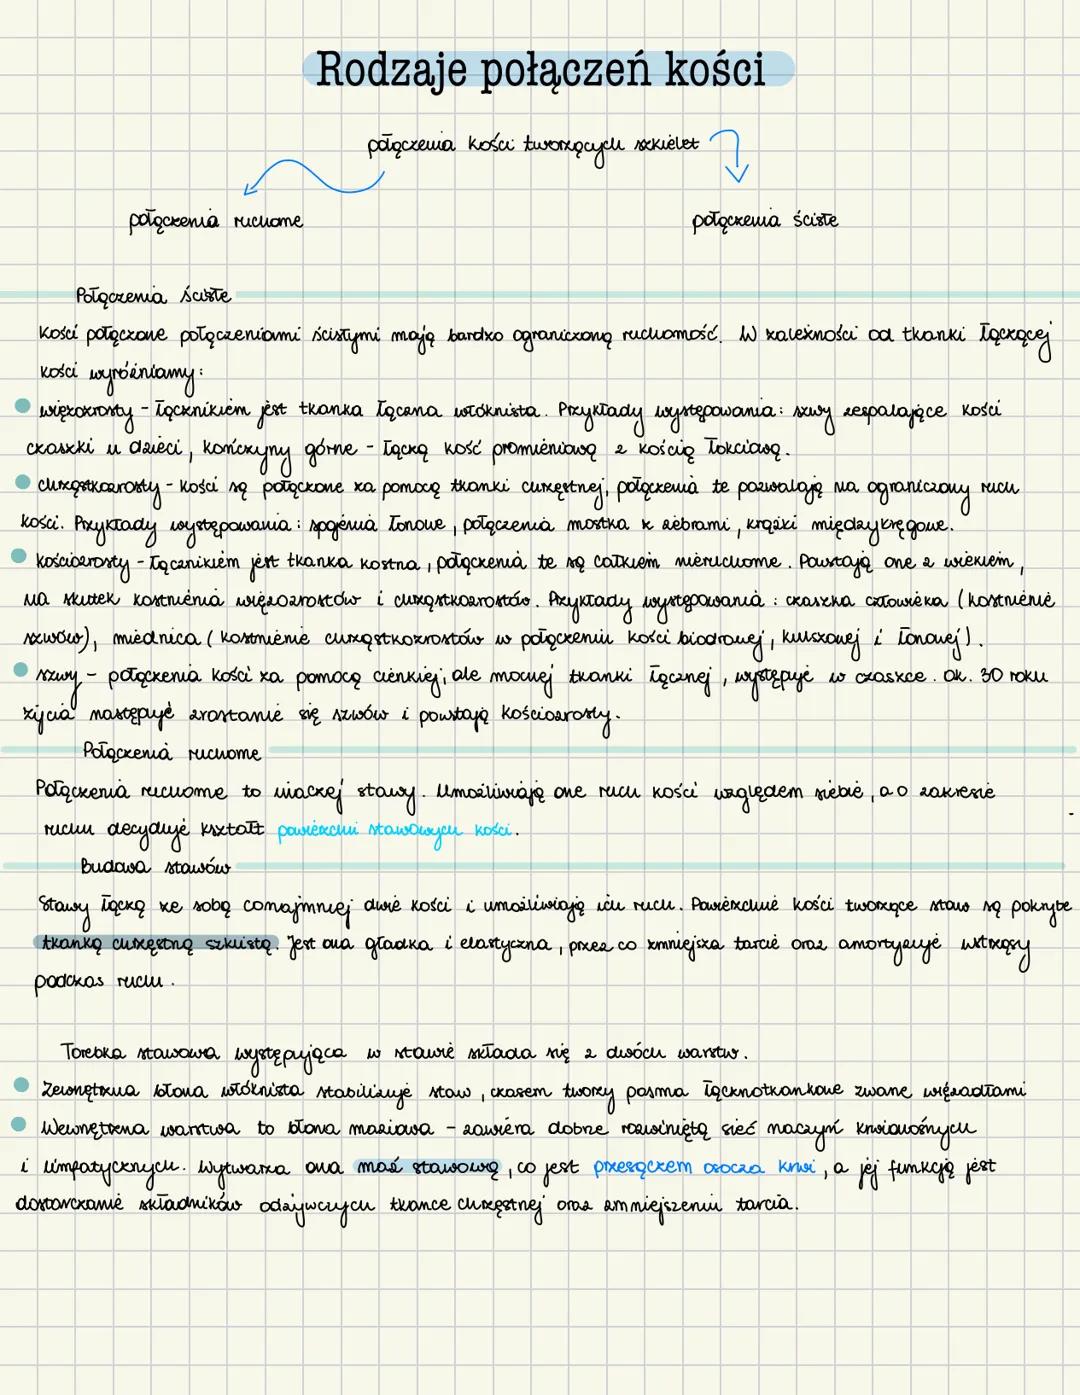 Rodzaje połączeń kości
połączenia kości tworzących szkielet
połączenia ruchome połączenia ściste
Połączenia ściste
Kości połączone połączeniami ścistymi mają bardzo ograniczoną ruchomość. W zależności od tkanki łączącej
kości wyróżniamy:
więzozrosty - łącznikiem jest tkanka łączna włóknista. Przykłady występowania: szwy zespalające kości
czaszki u dzieci, kończyny górne - łączą kość promieniową z kością łokciową.
chrząstkozrosty - kości są połączone za pomocą tkanki chrzęstnej, połączenia te pozwalają na ograniczony ruch
kości. Przykłady występowania: spojenia łonowe, połączenia mostka z żebrami, krążki międzykręgowe.
kościozrosty - łącznikiem jest tkanka kostna, połączenia te są całkiem nieruchome. Powstają one z wiekiem,
na skutek kostnienia więzozrostów i chrząstkozrostów. Przykłady występowania: czaszka człowieka (kostnienie
szwów), miednica (kostnienie chrząstkozrostów w połączeniu kości biodrowej, kulszowej i łonowej).
szwy - połączenia kości za pomocą cienkiej, ale mocnej tkanki łącznej, występuje w czaszce. Ok. 30 roku
życia następuje zrostanie się szwów i powstają kościozrosty.
Połączenia ruchome
Połączenia ruchome to inaczej stawy. Umożliwiają one ruch kości względem siebie, a o zakresie
ruchu decyduje kształt powierzchni stawowych kości.
Budowa stawów
Stawy łączą ze sobą conajmniej dwie kości i umożliwiają ich ruch. Powierzchnie kości tworzące staw są pokryte
tkanką chrzęstną szklistą. Jest ona gładka i elastyczna, przez co zmniejsza tarcie oraz amortyzuje wstrząsy
podczas ruchu.
Torebka stawowa występująca w stawie składa się z dwóch warstw.
Zewnętrzna błona włóknista stabilizuje staw, czasem tworzy pasma łącznotkankowe zwane więzadłami
Wewnętrzna warstwa to błona maziowa - zawiera dobrze rozwiniętą sieć naczyń krwionośnych
i limfatycznych. Wytwarza ona maź stawową, co jest przesączem osocza krwi, a jej funkcją jest
dostarczanie składników odżywczych tkance chrzęstnej oraz zmniejszeniu tarcia.